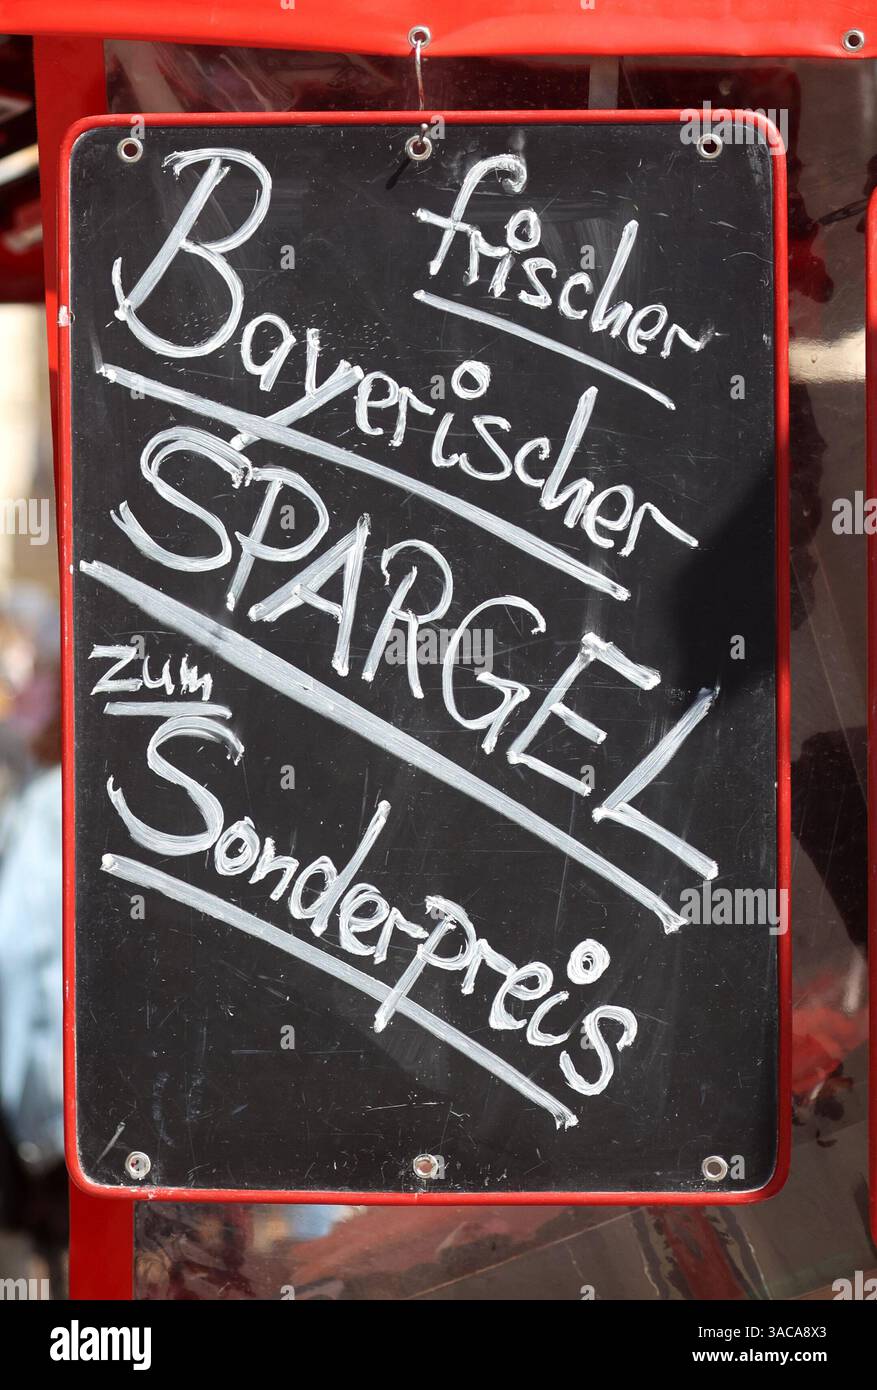 frischer
Bayerischer
SPARGEL
zum
Sonderpreis
a alamy
Image ID: 3ACA8X3
www.alamy.com